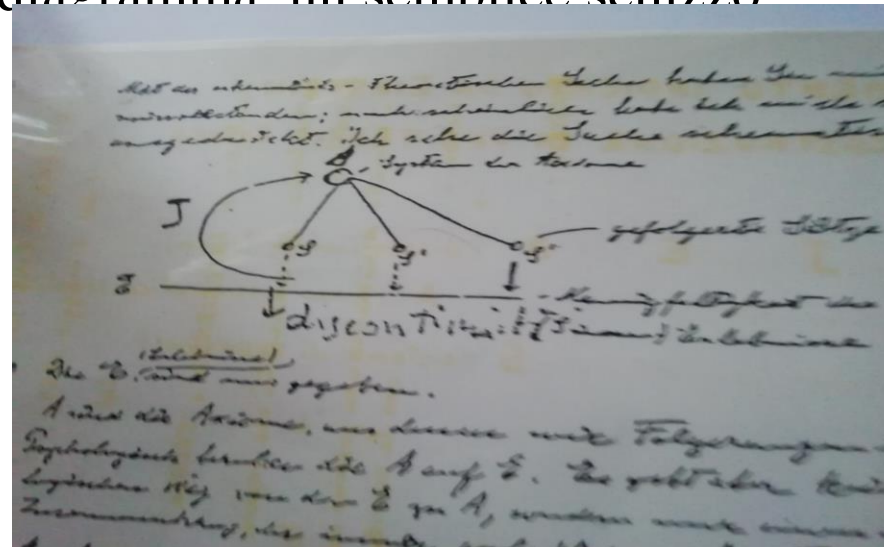 diagramma mi sembrice schizzo
Mit der erkenntnis-theoretischen Sache haben Sie
missverstanden; wahrscheinlich habe ich mich
ausgedrückt. Ich sehe die Sache schematisch
A
System der Axiome
J
S S' S''
gefolgerte Sätze
E
Mannigfaltigkeit der
discontinuity
Erlebnisse
(Erlebnisse)
Die E. sind uns gegeben.
A sind die Axiome, aus denen wir Folgerungen
Psychologisch beruhen die A auf E. Es gibt aber
logischen Weg von den E zu A, sondern nur einen
Zusammenhang, der immer